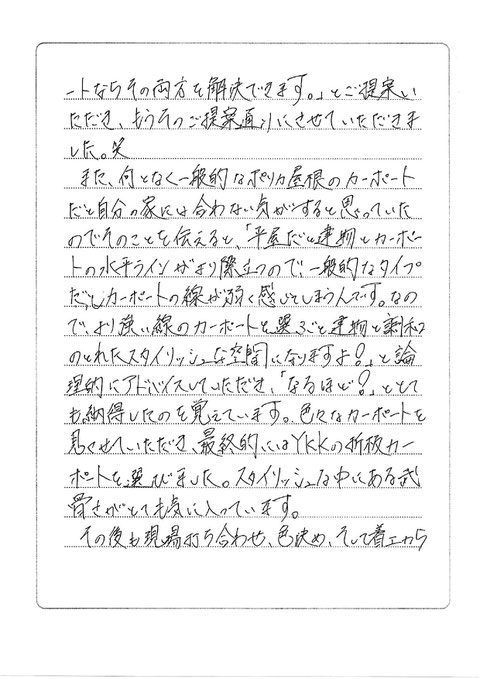 ートならその両方を解決できます。」とご提案い
ただき、もうそのご提案通りにさせていただきま
した。笑
また、何となく一般的なポリカ屋根のカーポート
だと自分の家には合わない気がすると思っていた
のでそのことを伝えると、「平屋だと建物とカーポー
トの水平ラインがより際立つので、一般的なタイプ
だとカーポートの線が弱く感じてしまうんです。なの
で、より強い線のカーポートを選ぶと建物と調和
のとれたスタイリッシュな空間になりますよ？」と論
理的にアドバイスしていただき、「なるほど？」ととて
も納得したのを覚えています。色々なカーポートを
見させていただき、最終的にはYKKの折板カー
ポートを選びました。スタイリッシュな中にある武
骨さがとても気に入っています。
その後も現場打ち合わせ、色決め、そして着工から